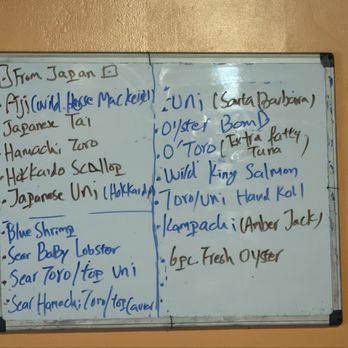 From Japan
· Aji (wild Horse Mackerel)
· Japanese Tai
· Hamachi Toro
· Hokkaido Scallop
· Japanese Uni (Hokkaido)
· Blue Shrimp
· Sear Baby Lobster
· Sear Toro/top Uni
· Sear Hamachi Toro/top Caviar
· Uni (Santa Barbara)
· Oyster Bomb
· O'Toro (Extra Fatty
Tuna)
· Wild King Salmon
· Toro/Uni Hand Roll
· Kampachi (Amber Jack)
· 6pc. Fresh Oyster